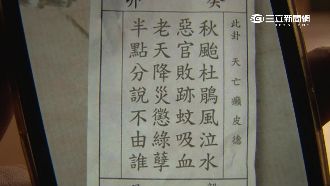 三立新聞網
癸卯
此卦 天亡癩皮德
秋颱杜鵑風泣水
惡官敗跡蚊吸血
老天降災懲綠孽
半點分說不由誰